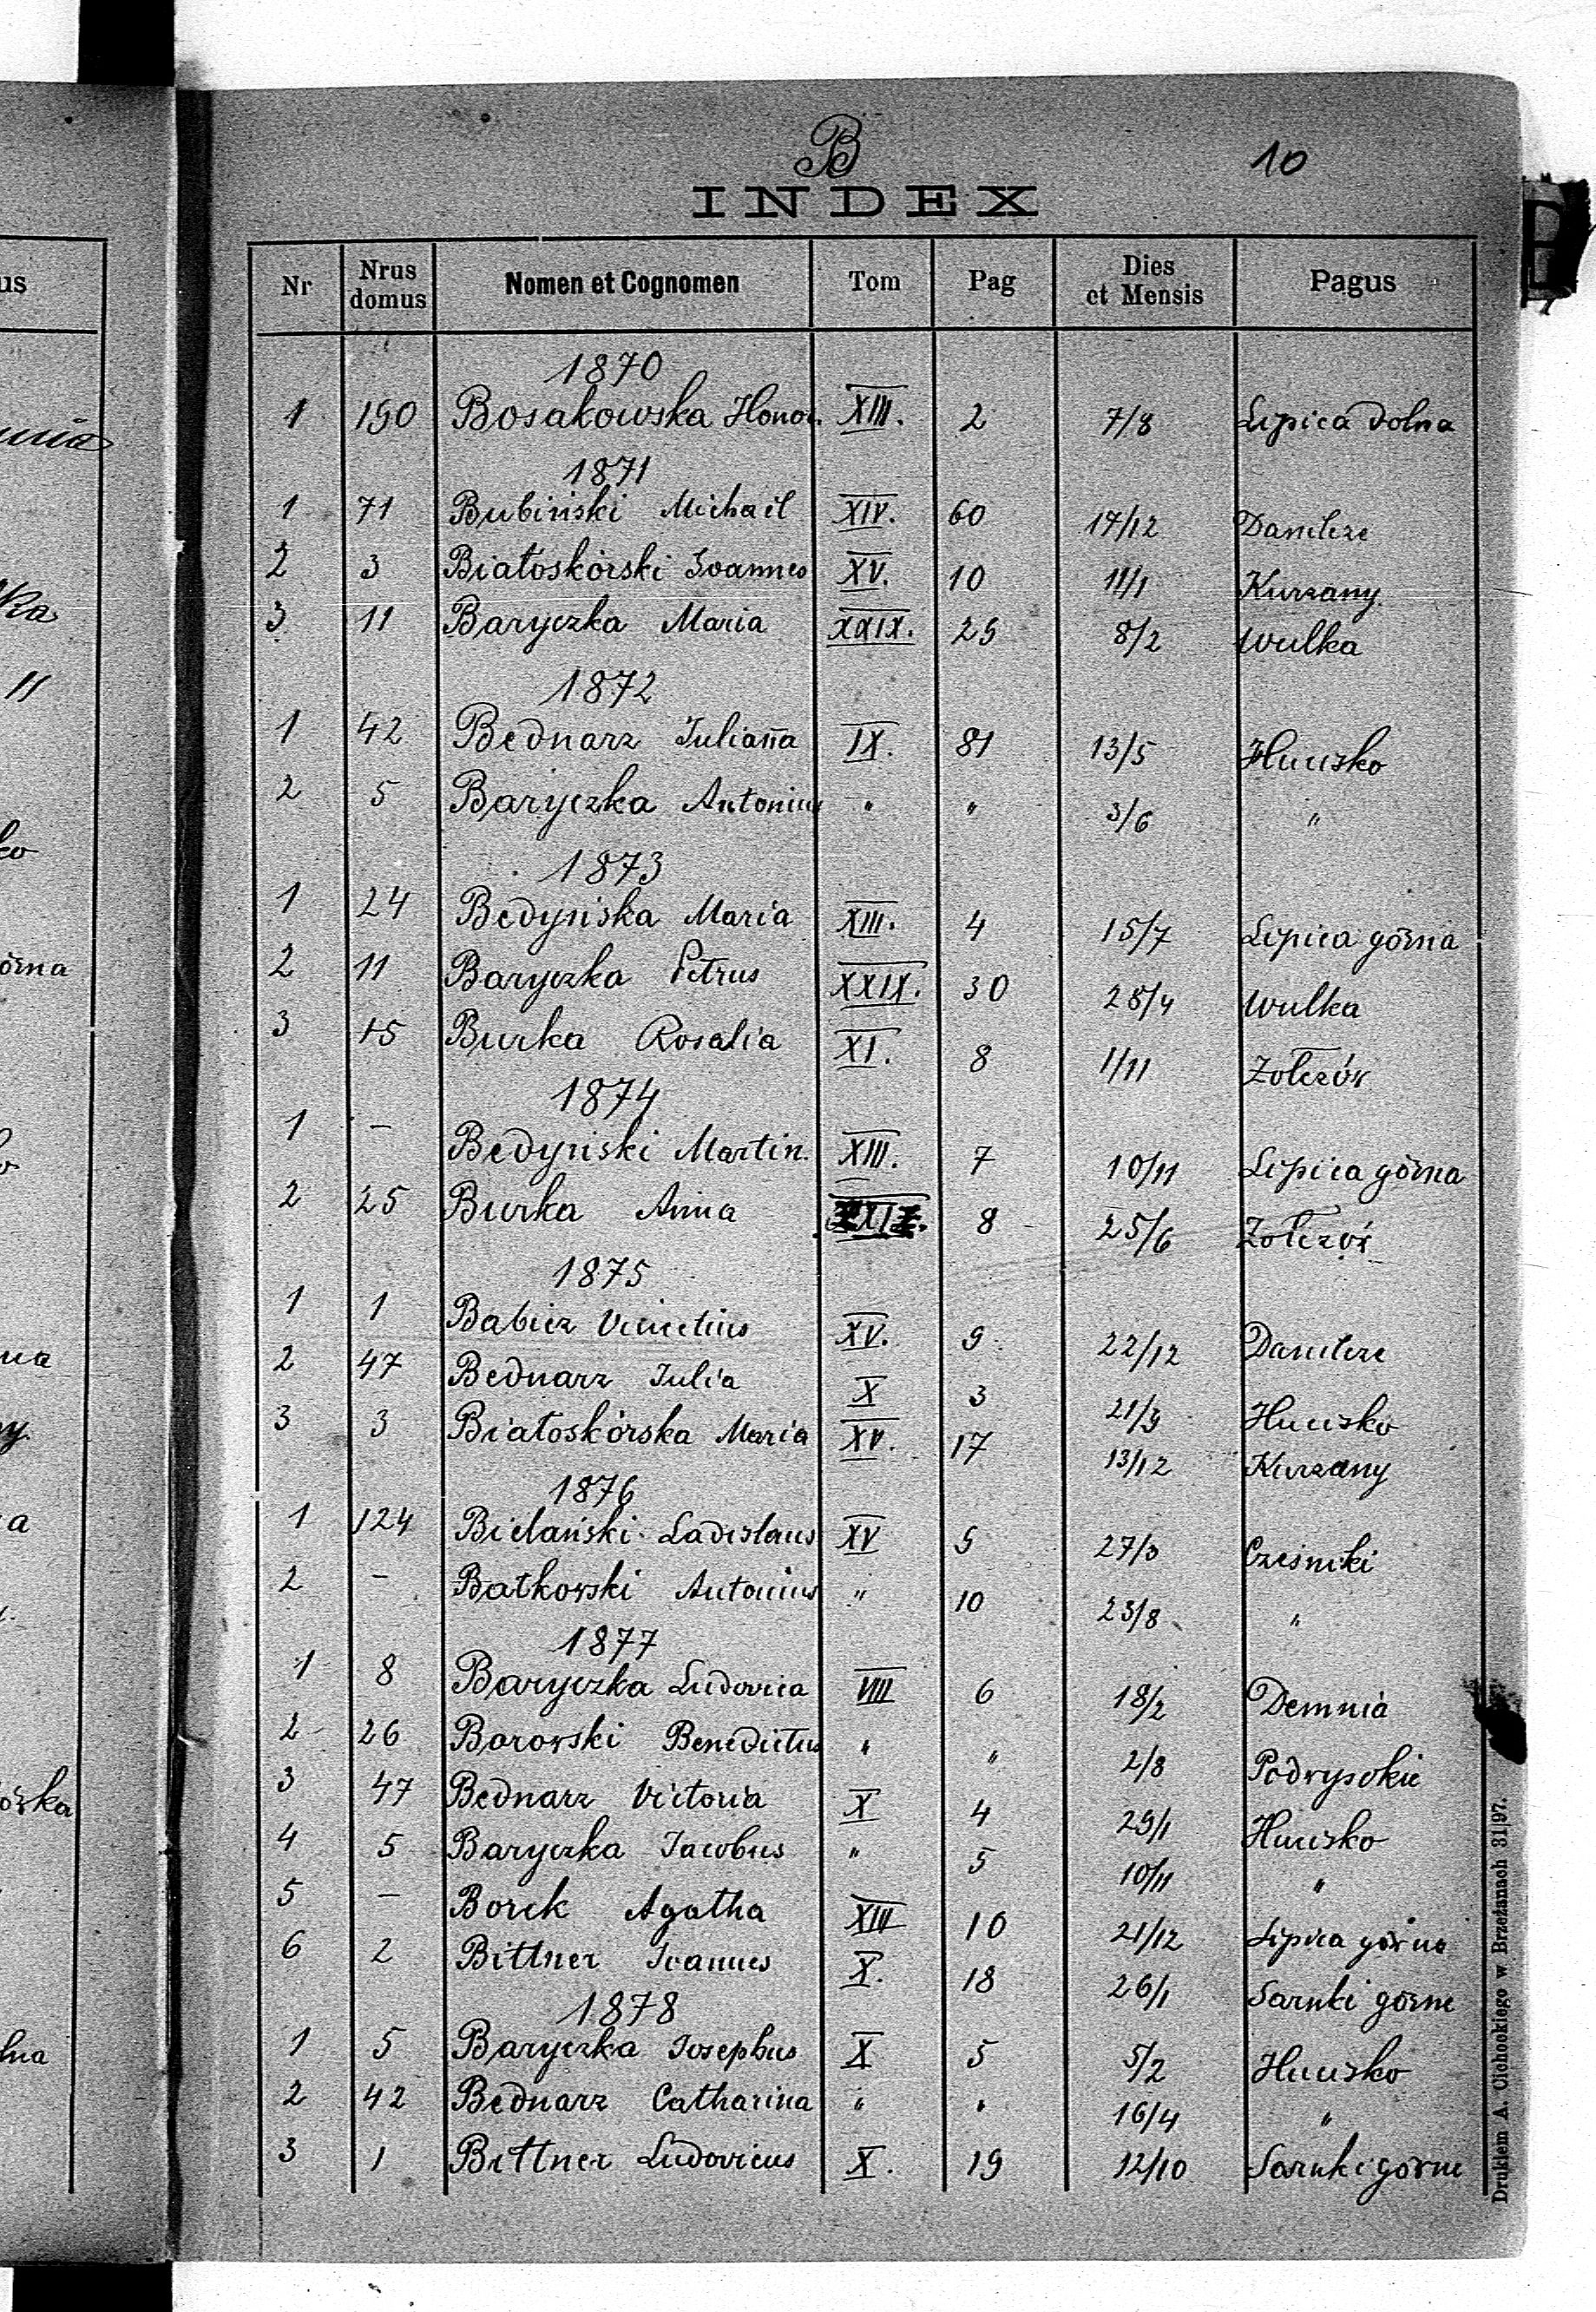 B
10
INDEX
Nr Nrus domus Nomen et Cognomen Tom Pag Dies et Mensis Pagus
1870
1 190 Bosakowska Honor. XIII. 2 7/8 Lipica dolna
1871
1 71 Bubiński Michael XIV. 60 17/12 Danilcze
2 3 Białoskórski Joannes XV. 10 11/1 Kurzany
3 11 Baryczka Maria XXIX. 29 8/2 Wulka
1872
1 42 Bednarz Julianna IX. 81 13/5 Hucisko
2 5 Baryczka Antonius " " 3/6 "
1873
1 24 Bedyńska Maria XIII. 4 15/7 Lipica górna
2 11 Baryczka Petrus XXIX. 30 28/4 Wulka
3 15 Burka Rosalia XI. 8 1/11 Zołczów
1874
1 - Bedyński Martin. XIII. 7 10/11 Lipica górna
2 25 Burka Anna XI. 8 25/6 Zołczów
1875
1 1 Babicz Vincetius XV. 9 22/12 Danilcze
2 47 Bednarz Julia X 3 21/9 Hucisko
3 3 Białoskórska Maria XV. 17 13/12 Kurzany
1876
1 124 Bielański Ladislaus XV 9 27/3 Cześniki
2 - Bałkowski Antonius " 10 23/8 "
1877
1 8 Baryczka Ludovica VIII 6 18/2 Demnia
2 26 Borowski Benedictus " " 2/8 Podwysokie
3 47 Bednarz Victoria X 4 29/1 Hucisko
4 5 Baryczka Jacobus " 5 10/11 "
5 - Borek Agatha XIII 10 21/12 Lipica górna
6 2 Bittner Joannes X. 18 26/1 Sarnki górne
1878
1 5 Baryczka Josephus X 5 5/2 Hucisko
2 42 Bednarz Catharina " " 16/4 "
3 1 Bittner Ludovicus X. 19 12/10 Sarnki górne
Drukiem A. Cichockiego w Brzeżanach 31|97.